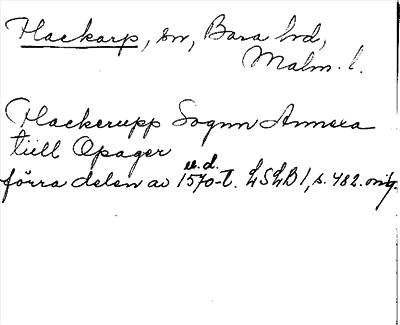 Flackarp, sn, Bara hd,
Malm. l.
Flackerupp Sognn Annexa
till Opager
u.d.
förra delen av 1570-t. LSLB 1, s. 482. orig.